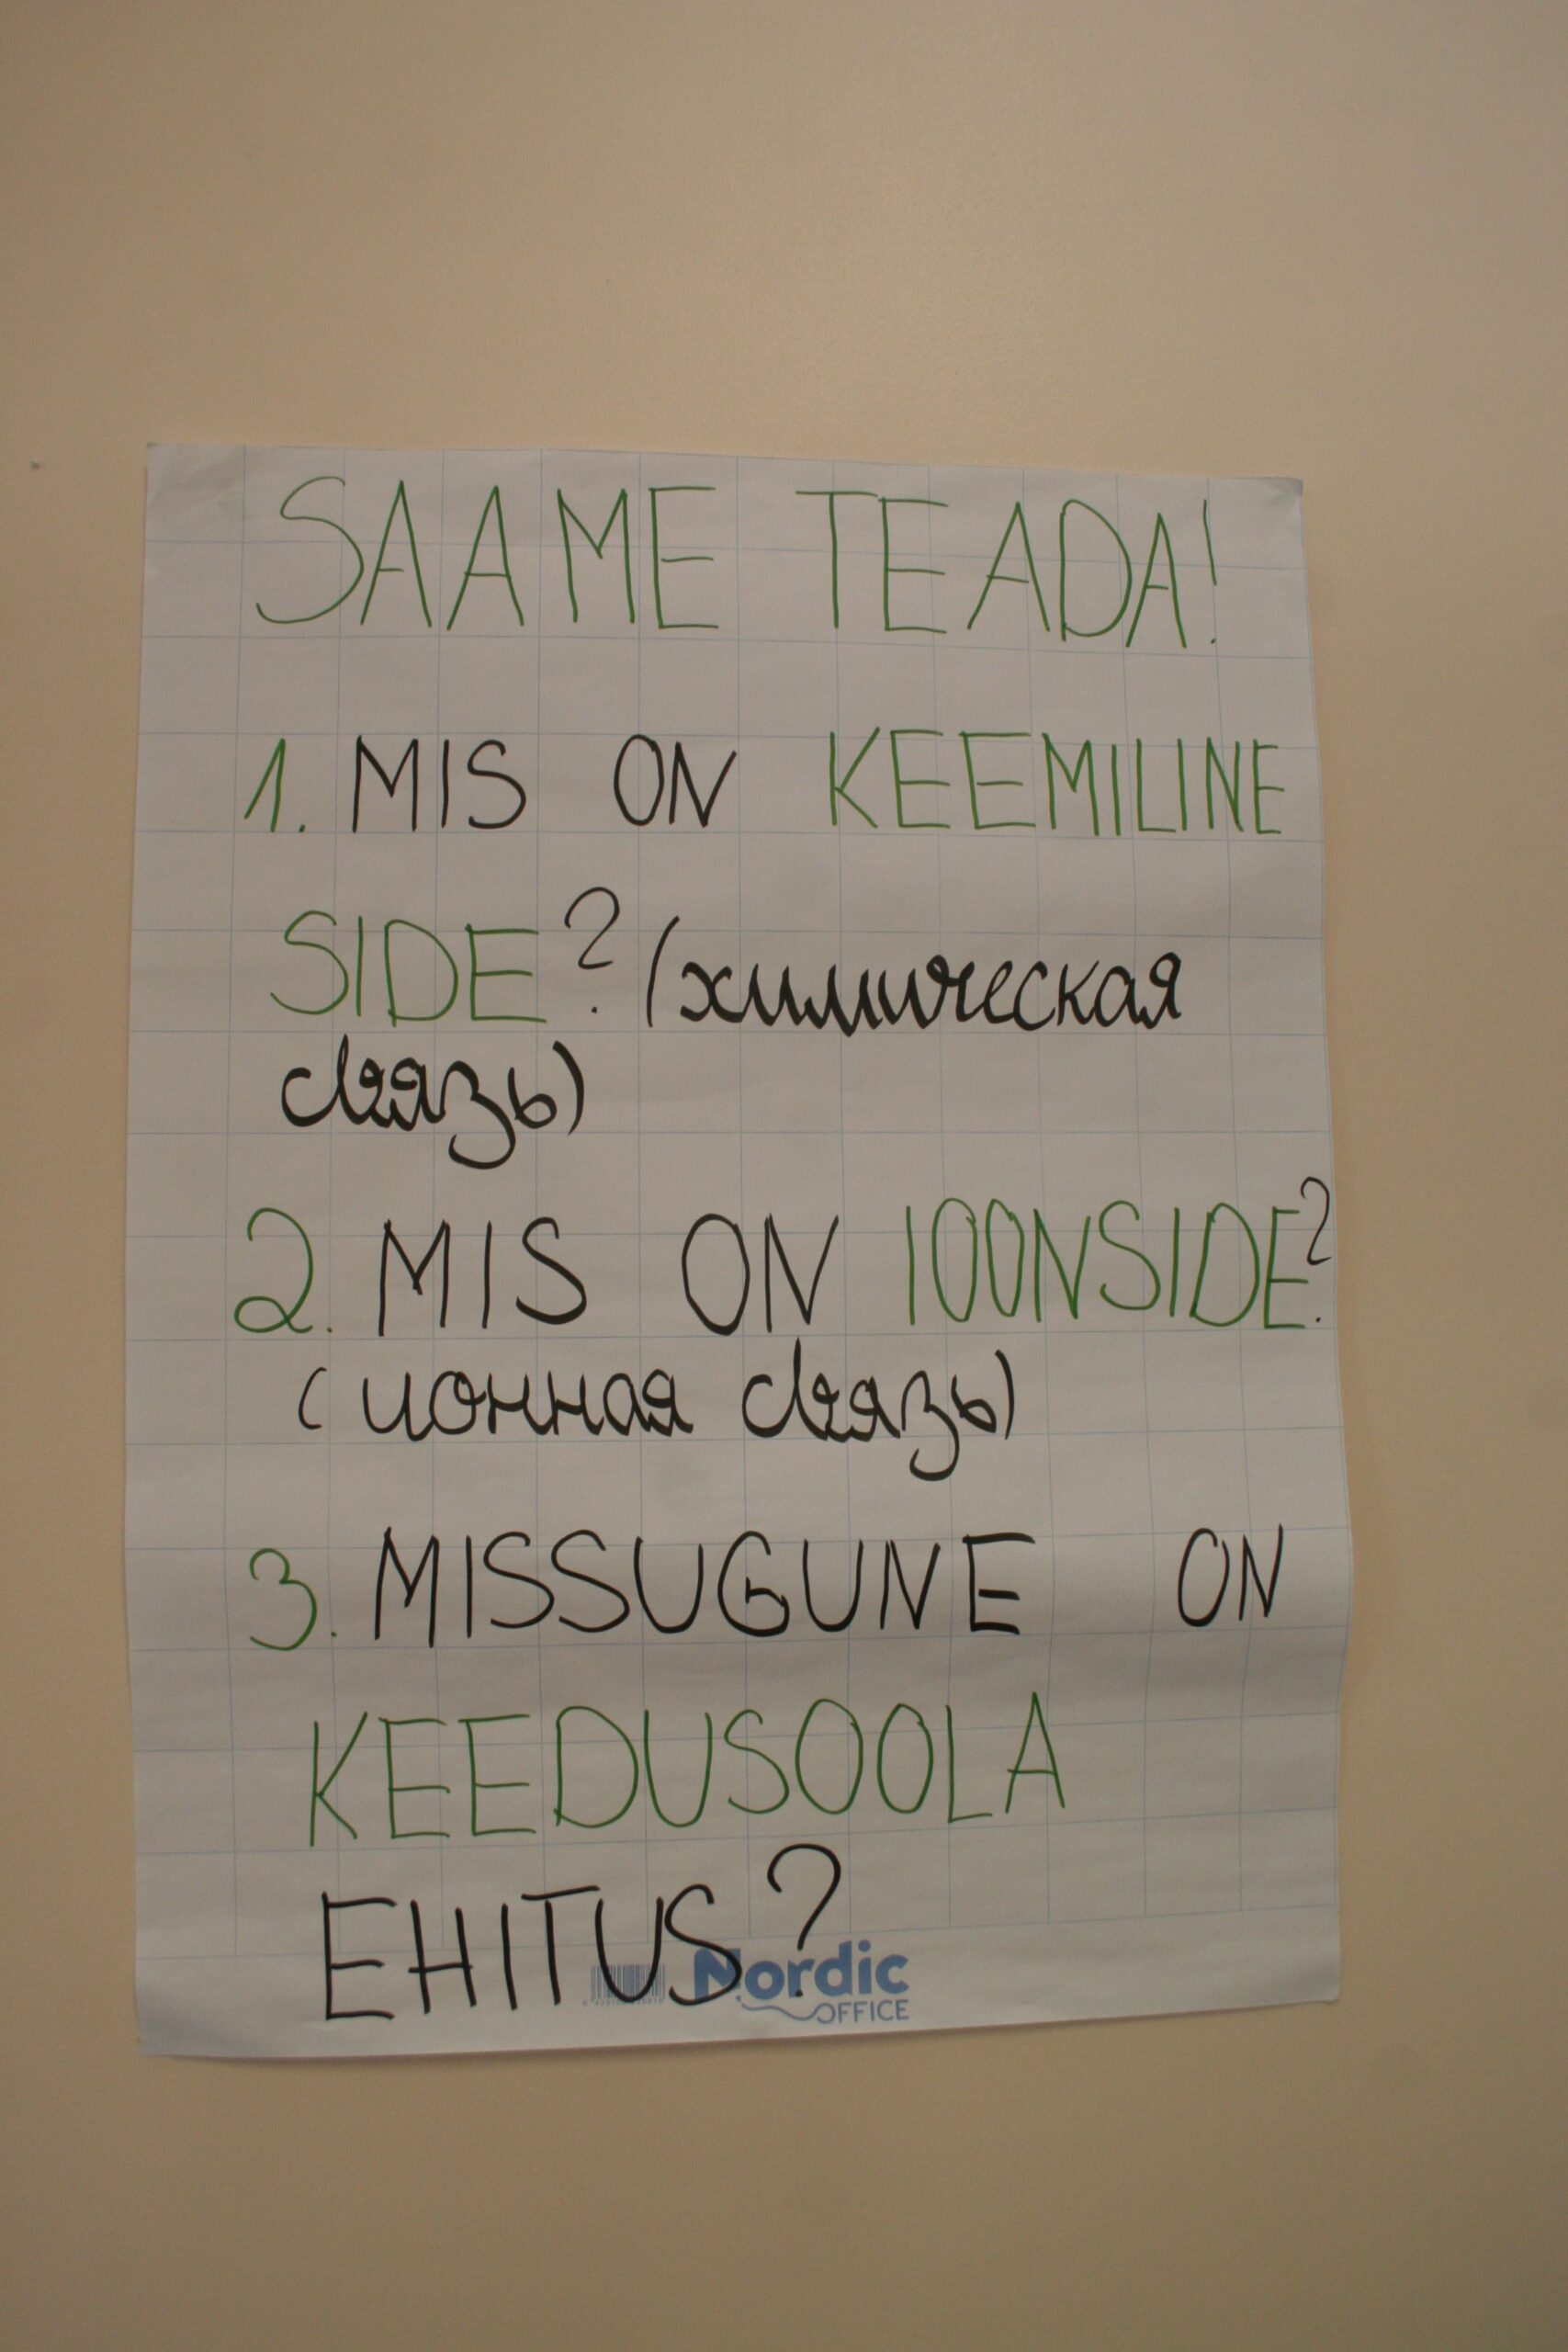 SAAME TEADA!
1. MIS ON KEEMILINE
SIDE? (химическая
связь)
2. MIS ON IOONSIDE?
(ионная связь)
3. MISSUGUNE ON
KEEDUSOOLA
EHITUS?
Nordic
OFFICE